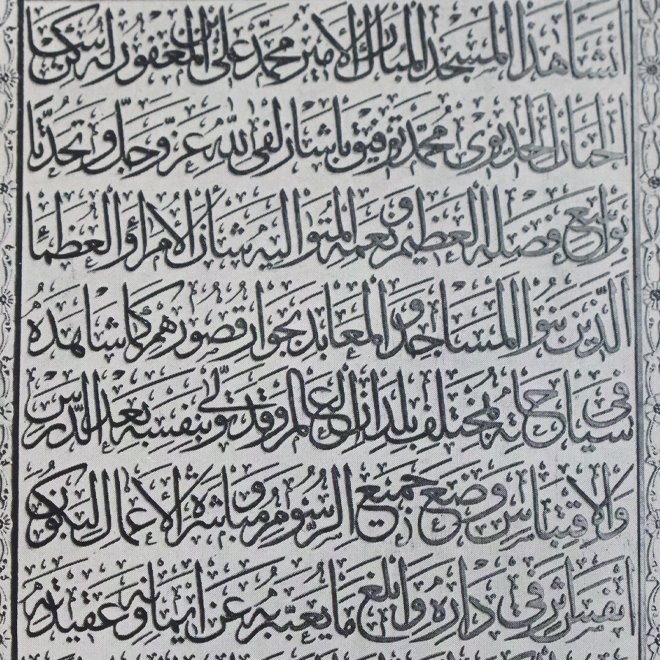 أنشأ هذا المسجد المبارك الأمير محمد علي ابن المغفور له ساكن
الجنان الخديوي محمد توفيق باشا زلفى لله عز وجل وتحدثا
بواسع فضله العظيم ونعمه المتوالية شأن الأمراء والعظماء
الذين بنوا المساجد والمعابد بجوار قصورهم كما شاهده
في سياحاته بمختلف بلدان العالم وقد تولى بنفسه بعد الدرس
والاقتباس وضع جميع الرسوم ومباشرة الأعمال ليكون
أنفس أثر في داره وأبلغ ما يعبر به عن إيمانه وعقيدته